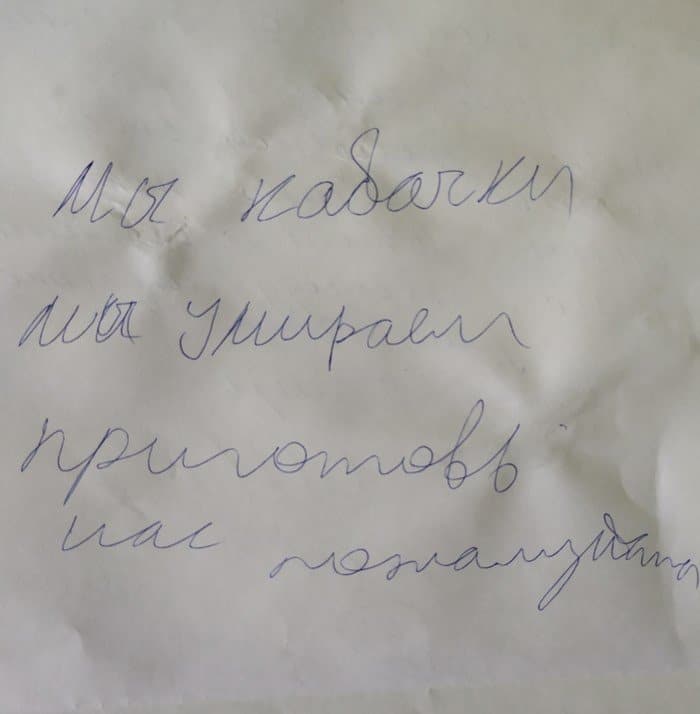 мы кабачки
мы умираем
приготовь
нас пожалуйста